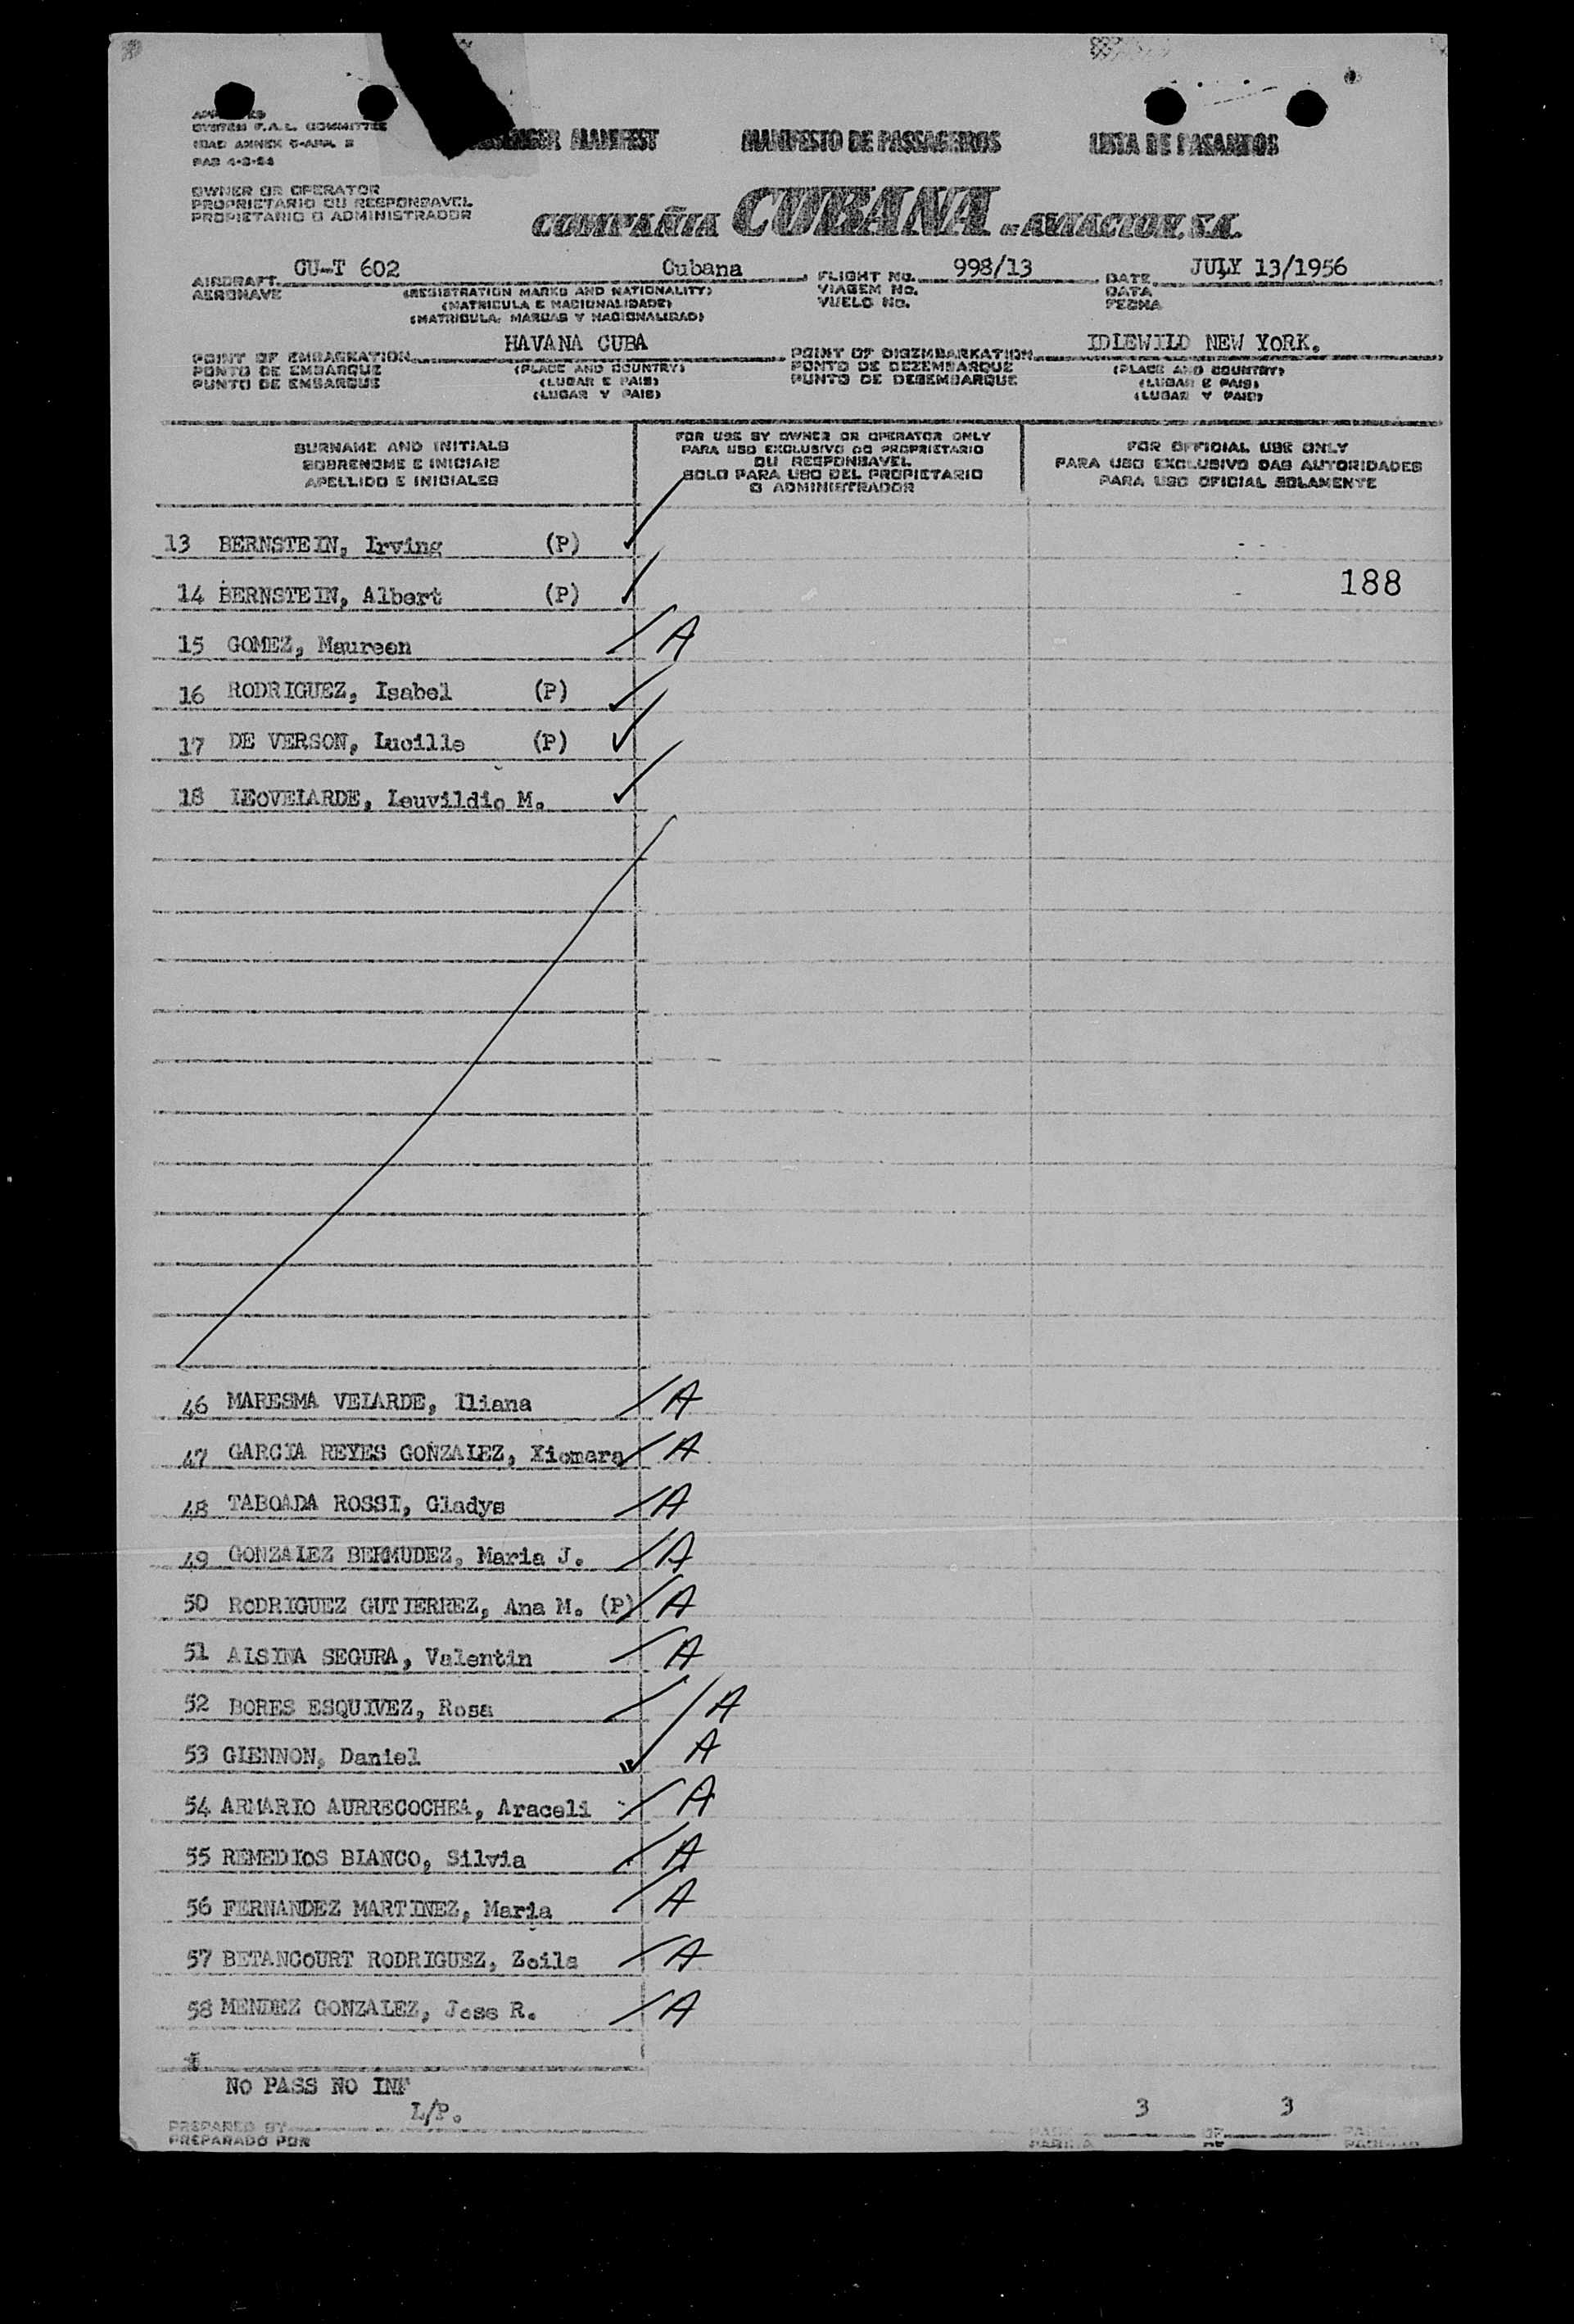 SYSTEM F.A.L. COMMITTEE
ICAO ANNEX 9-APP. 3
PAB 4-3-54
PASSENGER MANIFEST MANIFESTO DE PASSAGEIROS LISTA DE PASAJEROS
OWNER OR OPERATOR
PROPRIETARIO OU RESPONSAVEL
PROPIETARIO O ADMINISTRADOR
COMPAÑIA CUBANA DE AVIACION, S.A.
AIRCRAFT CU-T 602 Cubana FLIGHT NO. 998/13 DATE JULY 13/1956
AERONAVE (REGISTRATION MARKS AND NATIONALITY) VIAGEM NO. DATA
(MATRICULA E NACIONALIDADE) VUELO NO. FECHA
(MATRICULA, MARCAS Y NACIONALIDAD)
POINT OF EMBARKATION HAVANA CUBA POINT OF DISEMBARKATION IDLEWILD NEW YORK.
PONTO DE EMBARQUE (PLACE AND COUNTRY) PONTO DE DEZEMBARQUE (PLACE AND COUNTRY)
PUNTO DE EMBARQUE (LUGAR E PAIS) PUNTO DE DESEMBARQUE (LUGAR E PAIS)
(LUGAR Y PAIS) (LUGAR Y PAIS)
SURNAME AND INITIALS
SOBRENOME E INICIAIS
APELLIDO E INICIALES
FOR USE BY OWNER OR OPERATOR ONLY
PARA USO EXCLUSIVO DO PROPRIETARIO
OU RESPONSAVEL
SOLO PARA USO DEL PROPIETARIO
O ADMINISTRADOR
FOR OFFICIAL USE ONLY
PARA USO EXCLUSIVO DAS AUTORIDADES
PARA USO OFICIAL SOLAMENTE
13 BERNSTEIN, Irving (P)
14 BERNSTEIN, Albert (P) 188
15 GOMEZ, Maureen A
16 RODRIGUEZ, Isabel (P)
17 DE VERSON, Lucille (P)
18 LEOVELARDE, Leuvildio M.
46 MARESMA VELARDE, Iliana A
47 GARCIA REYES GONZALEZ, Xiomara A
48 TABOADA ROSSI, Gladys A
49 GONZALEZ BERMUDEZ, Maria J. A
50 RODRIGUEZ GUTIERREZ, Ana M. (P) A
51 ALSINA SEGURA, Valentin A
52 BORES ESQUIVEZ, Rosa A
53 GLENNON, Daniel A
54 ARMARIO AURRECOCHEA, Araceli A
55 REMEDIOS BLANCO, Silvia A
56 FERNANDEZ MARTINEZ, Maria A
57 BETANCOURT RODRIGUEZ, Zoila A
58 MENDEZ GONZALEZ, Jose R. A
NO PASS NO INF
L/P.
PREPARED BY
PREPARADO POR
3 OF 3